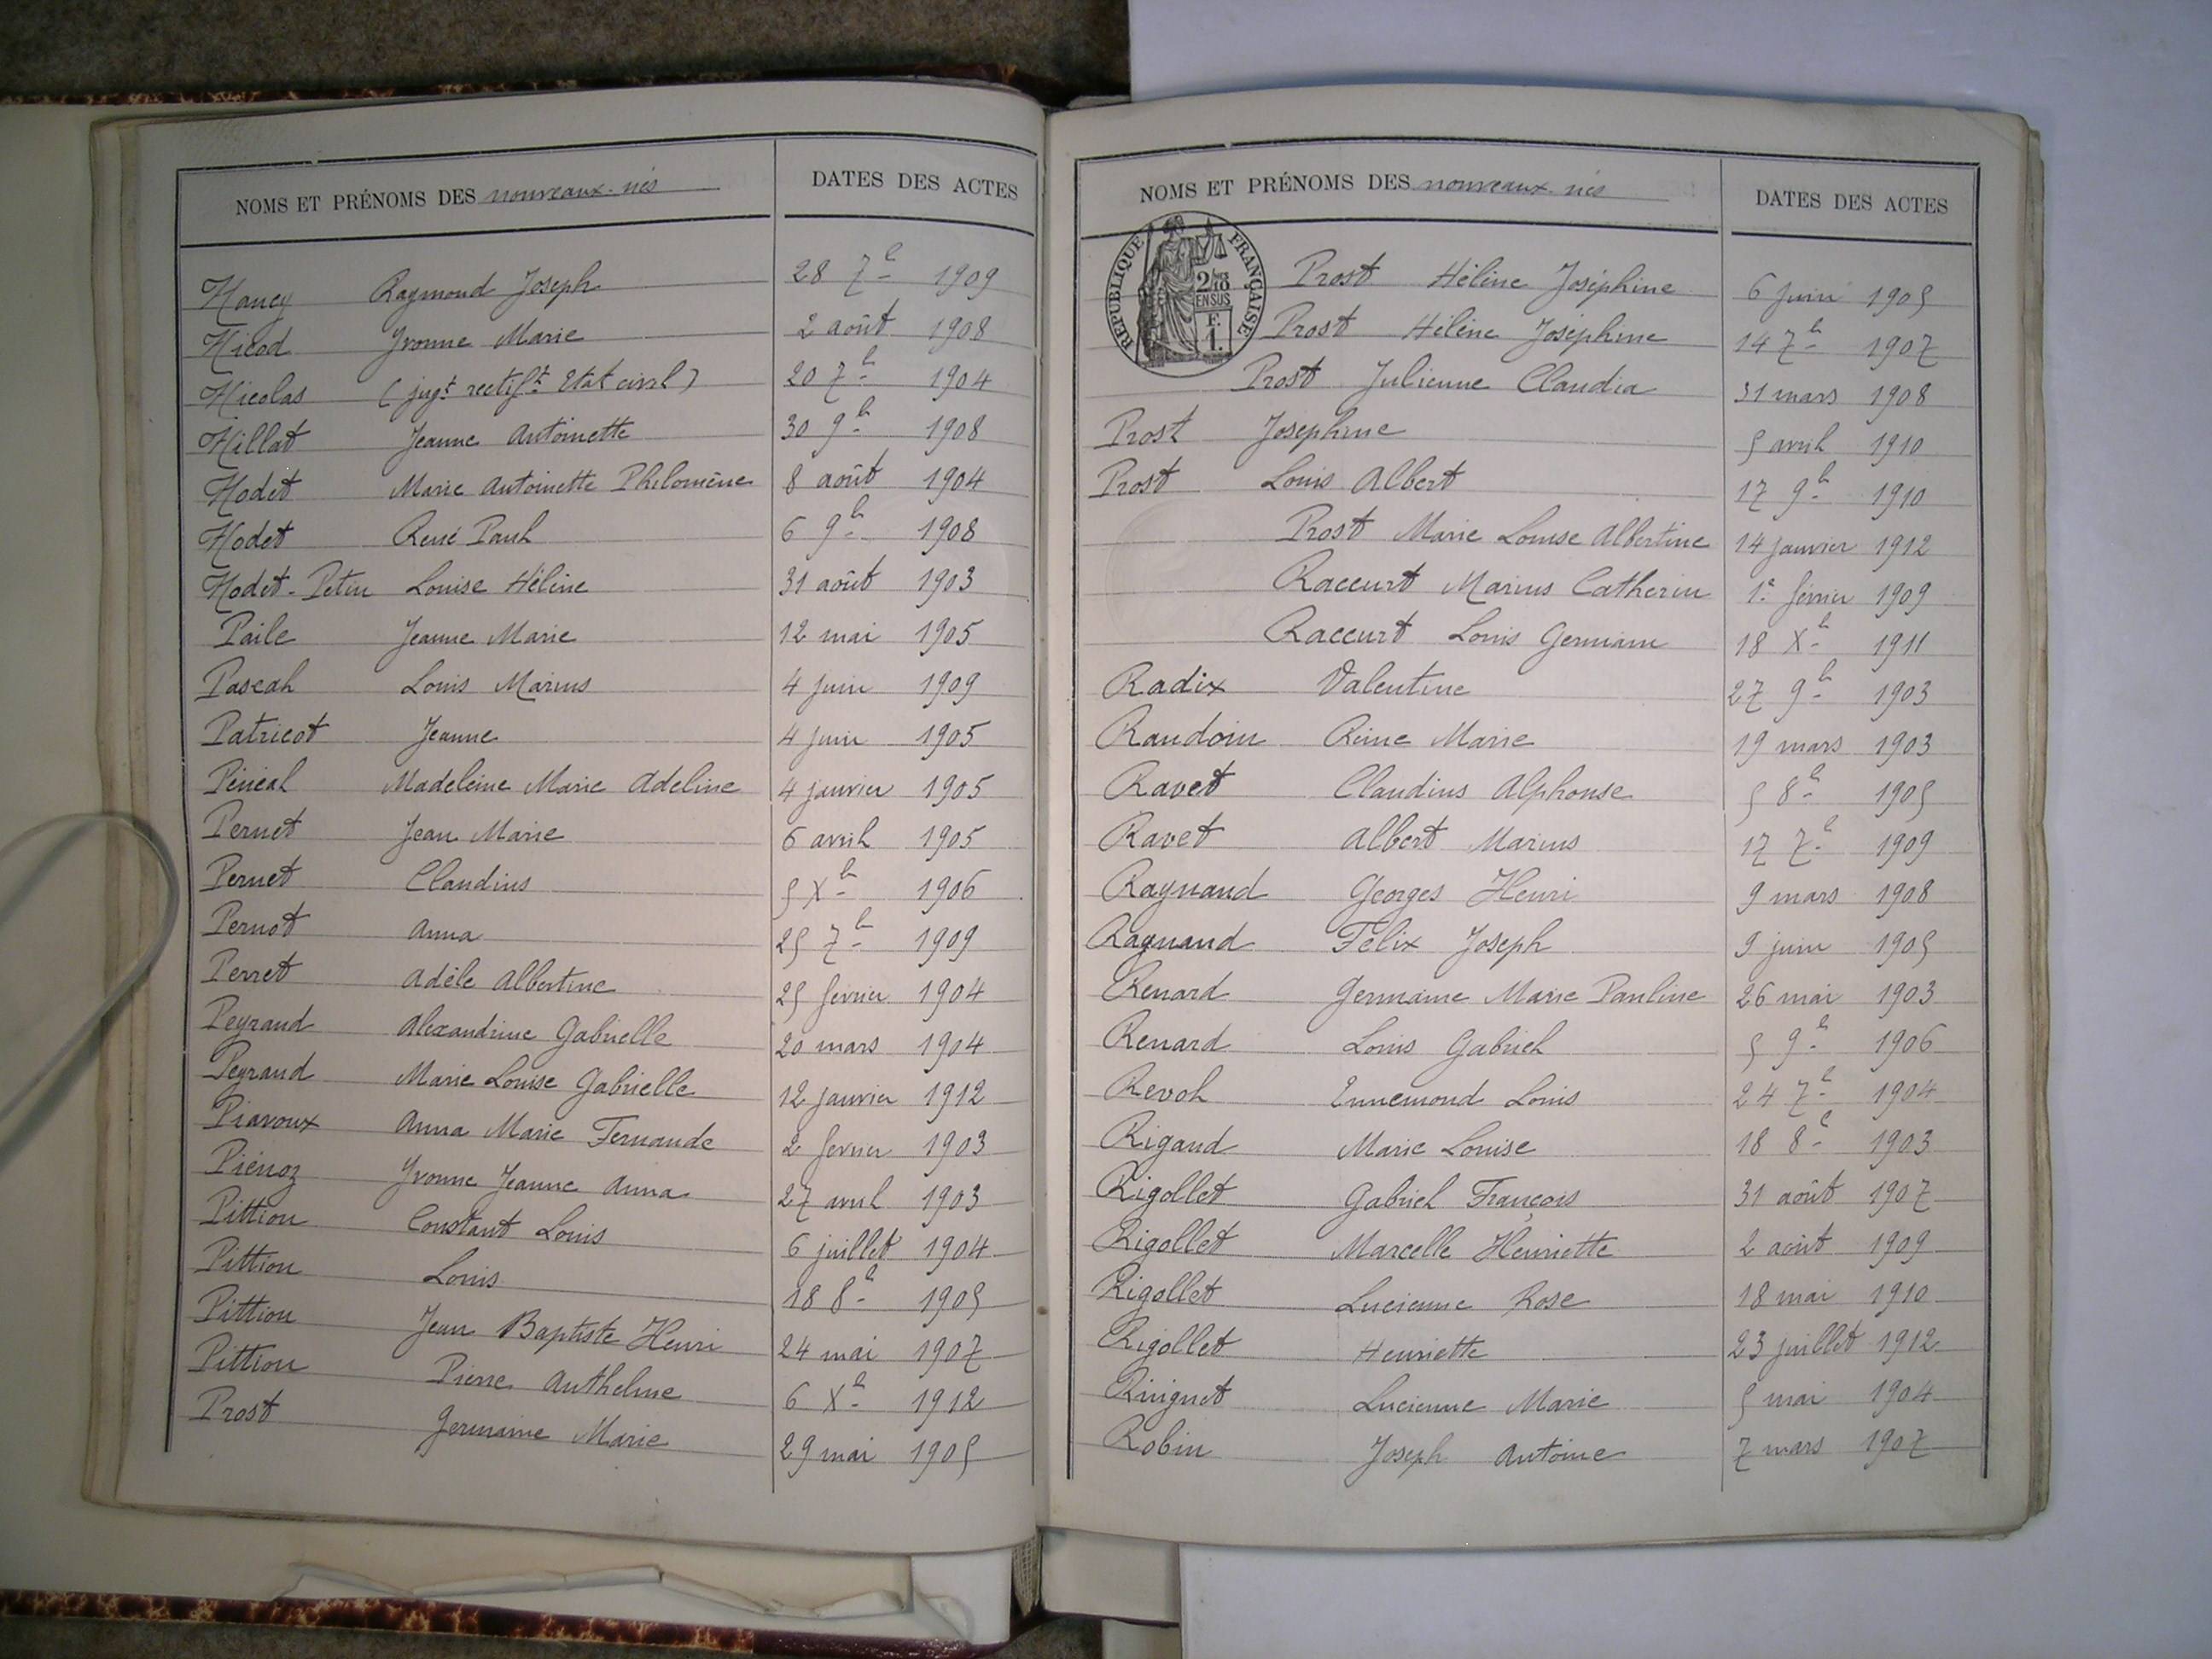 NOMS ET PRÉNOMS DES nouveaux-nés DATES DES ACTES
Nancy Raymond Joseph 28 7b 1909
Nicod Yvonne Marie 2 août 1908
Nicolas (jugt rectift Etat civil) 20 7b 1904
Nillat Jeanne Antoinette 30 9b 1908
Nodet Marie Antoinette Philomène 8 août 1904
Nodet René Paul 6 9b 1908
Nodet-Petin Louise Hélène 31 août 1903
Paile Jeanne Marie 12 mai 1905
Pascal Louis Marius 4 juin 1909
Patricot Jeanne 4 juin 1905
Pénéal Madeleine Marie Adeline 4 janvier 1905
Pernet Jean Marie 6 avril 1905
Pernet Claudius 5 Xb 1906
Pernot Anna 25 7b 1909
Perret Adèle Albertine 25 février 1904
Peyraud Alexandrine Gabrielle 20 mars 1904
Peyraud Marie Louise Gabrielle 12 janvier 1912
Piavoux Anna Marie Fernande 2 février 1903
Piénoz Yvonne Jeanne Anna 27 avril 1903
Pittion Constant Louis 6 juillet 1904
Pittion Louis 18 8b 1905
Pittion Jean Baptiste Henri 24 mai 1907
Pittion Pierre Anthelme 6 Xb 1912
Prost Germaine Marie 29 mai 1905
NOMS ET PRÉNOMS DES nouveaux-nés DATES DES ACTES
RÉPUBLIQUE FRANÇAISE
2/10
EN SUS
F.
1.
Prost Hélène Joséphine 6 juin 1905
Prost Hélène Joséphine 14 7b 1907
Prost Julienne Claudia 31 mars 1908
Prost Joséphine 5 avril 1910
Prost Louis Albert 17 9b 1910
Prost Marie Louise Albertine 14 janvier 1912
Raccurt Marius Catherin 1er février 1909
Raccurt Louis Germain 18 Xb 1911
Radix Valentine 27 9b 1903
Raudoin Reine Marie 19 mars 1903
Ravet Claudius Alphonse 5 8b 1905
Ravet Albert Marius 17 7b 1909
Raynaud Georges Henri 9 mars 1908
Raynaud Félix Joseph 9 juin 1905
Renard Germaine Marie Pauline 26 mai 1903
Renard Louis Gabriel 5 9b 1906
Revol Ennemond Louis 24 7b 1904
Rigaud Marie Louise 18 8b 1903
Rigollet Gabriel François 31 août 1907
Rigollet Marcelle Henriette 2 août 1909
Rigollet Lucienne Rose 18 mai 1910
Rigollet Henriette 23 juillet 1912
Lucienne Marie 5 mai 1904
Robin Joseph Antoine 7 mars 1907